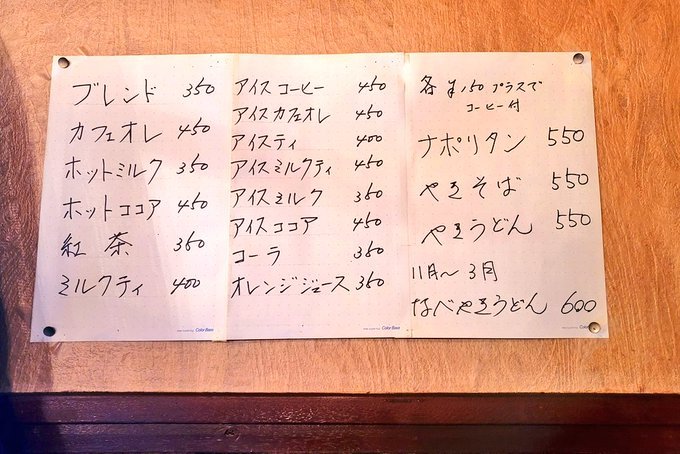 ブレンド 350
カフェオレ 450
ホットミルク 350
ホットココア 450
紅茶 350
ミルクティ 400
アイスコーヒー 450
アイスカフェオレ 450
アイスティ 400
アイスミルクティ 450
アイスミルク 350
アイスココア 450
コーラ 350
オレンジジュース 350
各¥150プラスで
コーヒー付
ナポリタン 550
やきそば 550
やきうどん 550
11月〜3月
なべやきうどん 600
Color Base
Color Base
Color Base